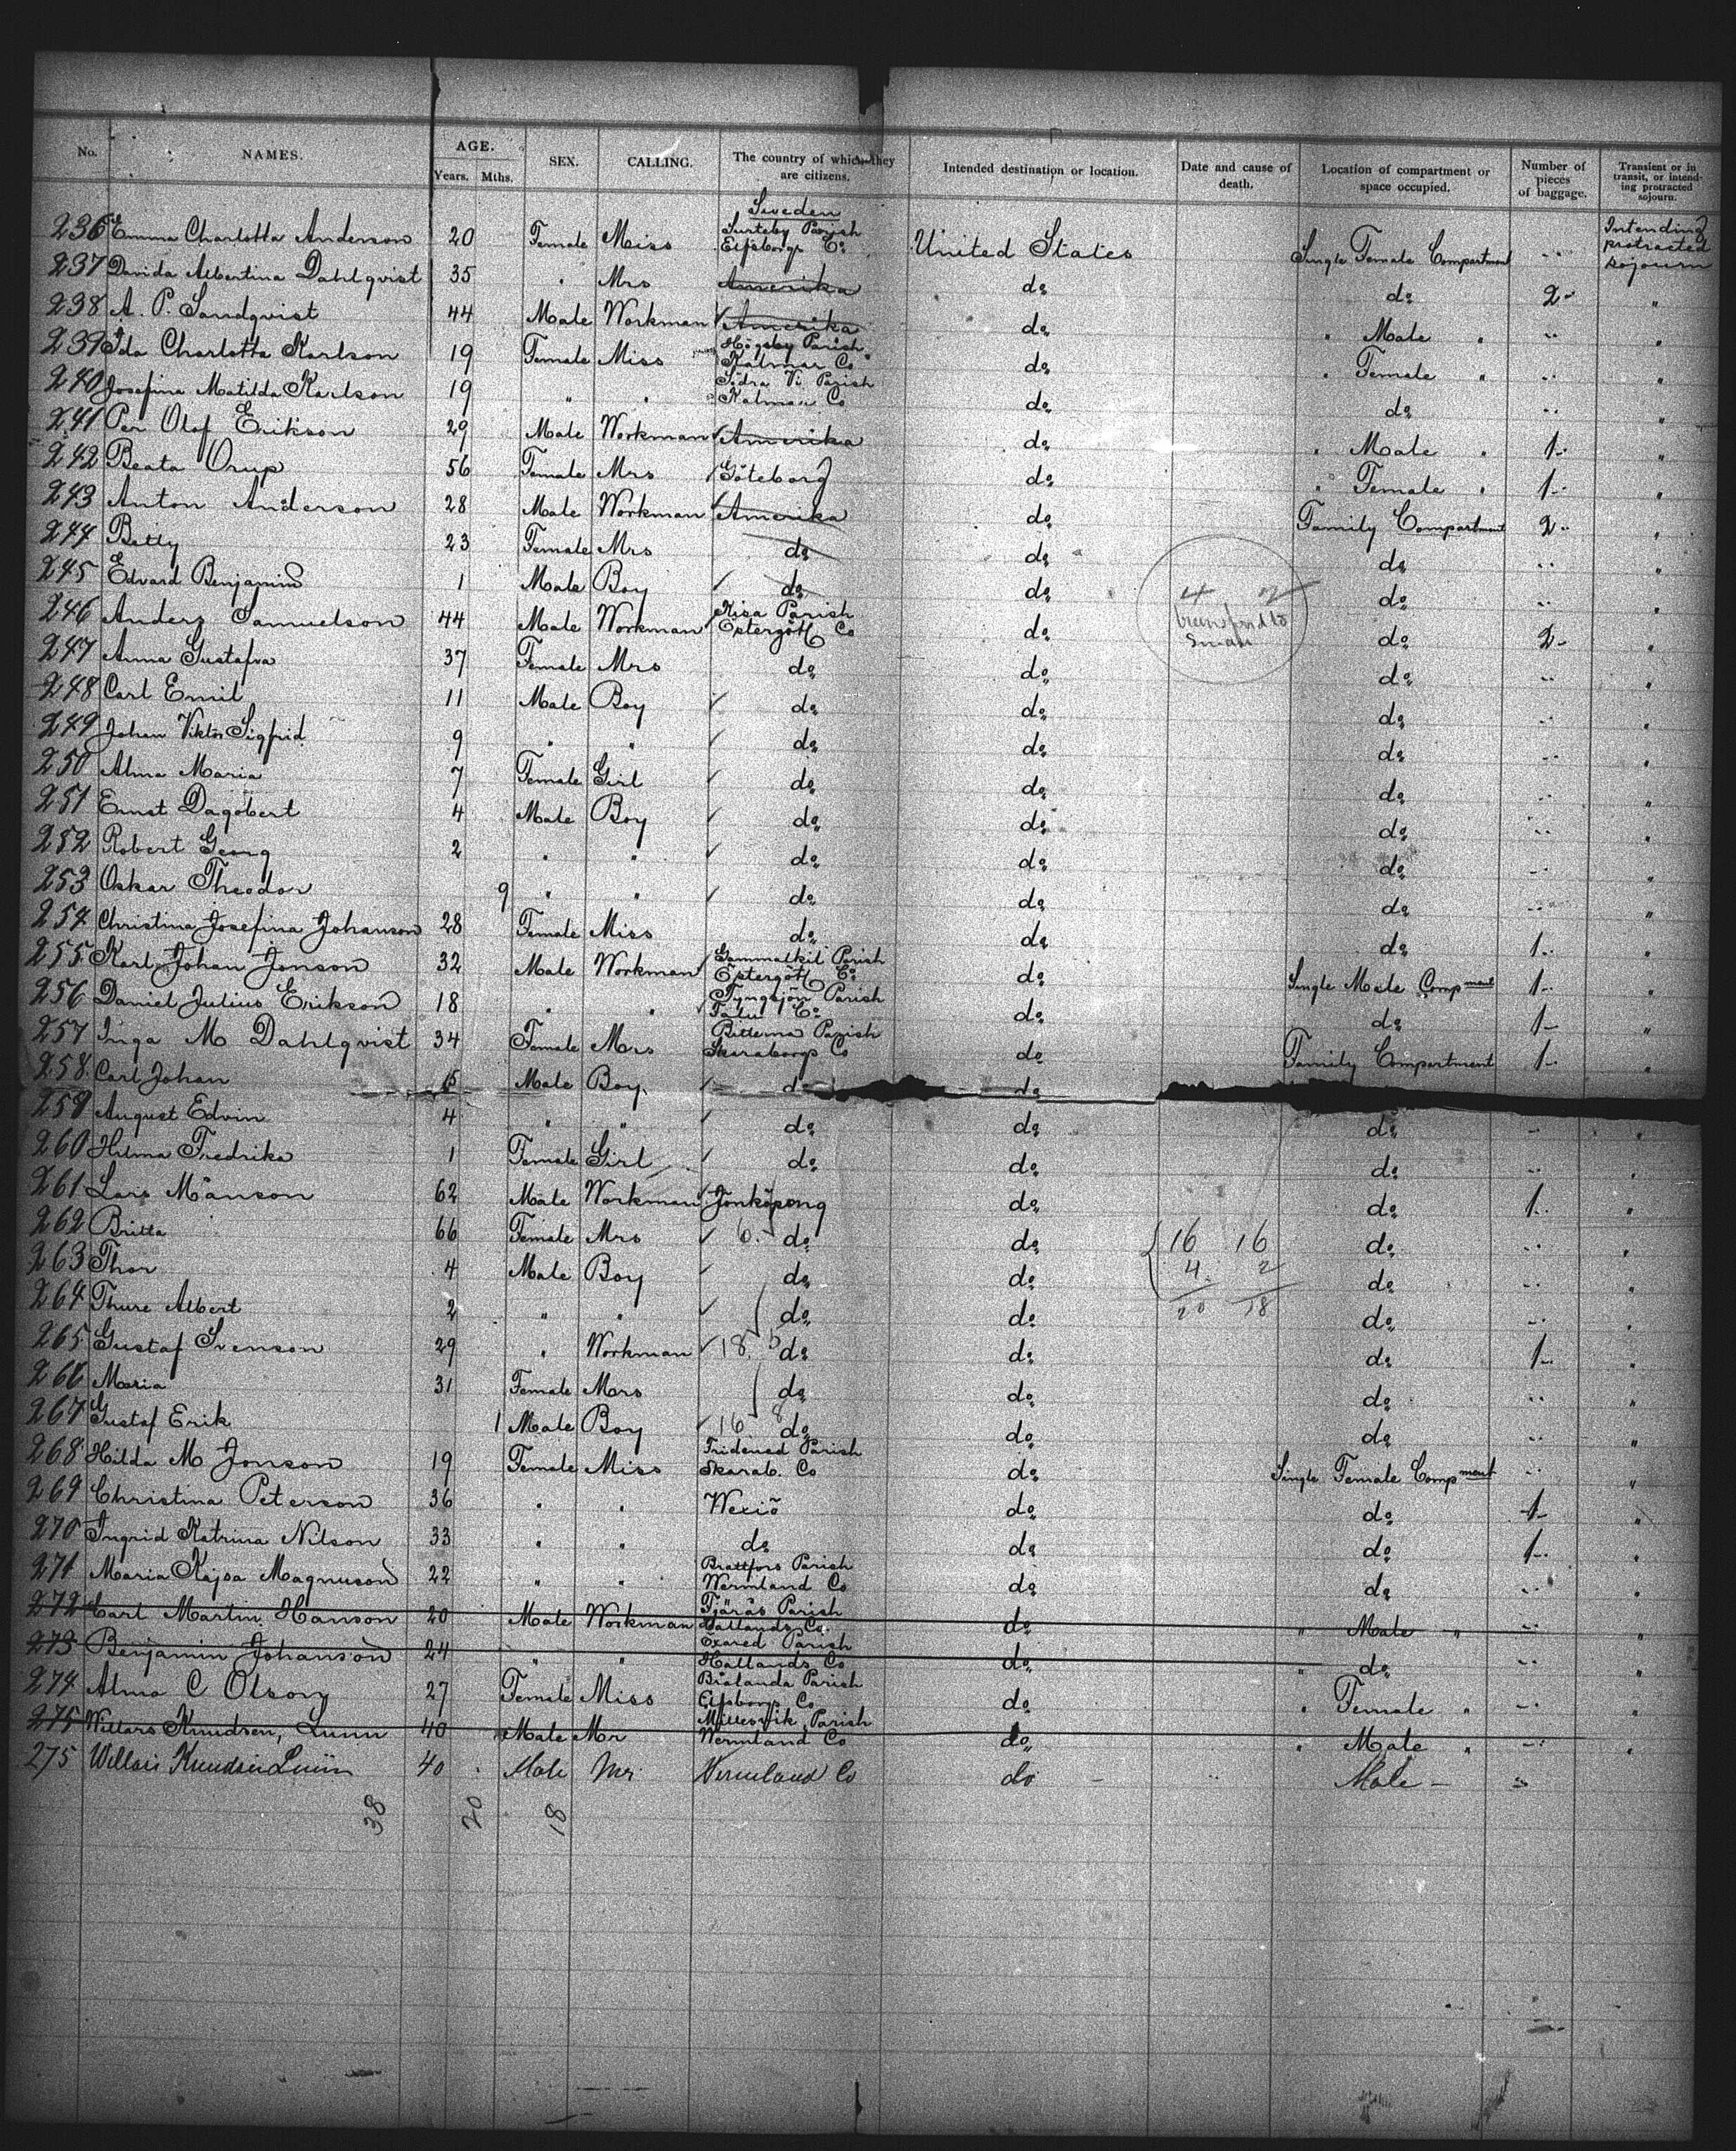 No. NAMES. AGE. Years. Mths. SEX. CALLING. The country of which they are citizens. Intended destination or location. Date and cause of death. Location of compartment or space occupied. Number of pieces of baggage. Transient or in transit, or intending protracted sojourn.
Sweden
236 Emma Charlotta Anderson 20 Female Miss Surteby Parish Elfsborgs Co United States Single Female Compartment Intending protracted sojourn
237 Davida Albertina Dahlqvist 35 " Mrs Amerika do do 2 "
238 A. P. Sandqvist 44 Male Workman Amerika do " Male " "
239 Ida Charlotta Karlson 19 Female Miss Högsby Parish Kalmar Co do " Female " "
240 Josefina Matilda Karlson 19 " " Södra Vi Parish Kalmar Co do do "
241 Per Olof Erikson 29 Male Workman Amerika do " Male " 1 "
242 Beata Orup 56 Female Mrs Göteborg do " Female " 1 "
243 Anton Anderson 28 Male Workman Amerika do Family Compartment 2 "
244 Betty 23 Female Mrs do do do "
245 Edvard Benjamin 1 Male Boy do do do "
246 Anders Samuelson 44 Male Workman Kisa Parish Östergötl Co do do 2 "
247 Anna Gustafva 37 Female Mrs do do do "
248 Carl Emil 11 Male Boy do do do "
249 Johan Viktor Sigfrid 9 " " do do do "
250 Alma Maria 7 Female Girl do do do "
251 Ernst Dagobert 4 Male Boy do do do "
252 Robert Georg 2 " " do do do "
253 Oskar Theodor 9 " " do do do "
254 Christina Josefina Johanson 28 Female Miss do do do 1 "
255 Karl Johan Jonson 32 Male Workman Gammalkil Parish Östergötl Co do Single Male Compment 1 "
256 Daniel Julius Erikson 18 " " Tyngsjön Parish Falu Co do do 1 "
257 Inga M Dahlqvist 34 Female Mrs Bitterna Parish Skaraborgs Co do Family Compartment 1 "
258 Carl Johan 5 Male Boy do do
259 August Edvin 4 " " do do do "
260 Hilma Fredrika 1 Female Girl do do do "
261 Lars Månson 62 Male Workman Jonköping do do 1 "
262 Britta 66 Female Mrs 6. do do 16 16 do "
263 Thor 4 Male Boy do do 4 2 do "
264 Thure Albert 2 " " do do 20 18 do "
265 Gustaf Svenson 29 " Workman 18 do do do 1 "
266 Maria 31 Female Mrs do do do "
267 Gustaf Erik 1 Male Boy 16 do do do "
268 Hilda M Jonson 19 Female Miss Fridened Parish Skarab. Co do Single Female Compment "
269 Christina Peterson 36 " " Wexiö do do 1 "
270 Ingrid Katrina Nilson 33 " " do do do 1 "
271 Maria Kajsa Magnuson 22 " " Brattfors Parish Wermland Co do do "
272 Carl Martin Hanson 20 Male Workman Fjärås Parish Hallands Co. do " Male " "
273 Benjamin Johanson 24 " " Parish Hallands Co do " do "
274 Alma C Olson 27 Female Miss Bialanda Parish Elfsborgs Co do " Female " "
275 Willars Knudsen, Lunn 40 Male Mr Millesvik Parish Wermland Co do " Male " "
275 40 Male Mr Vermland Co do Male
38 20 18